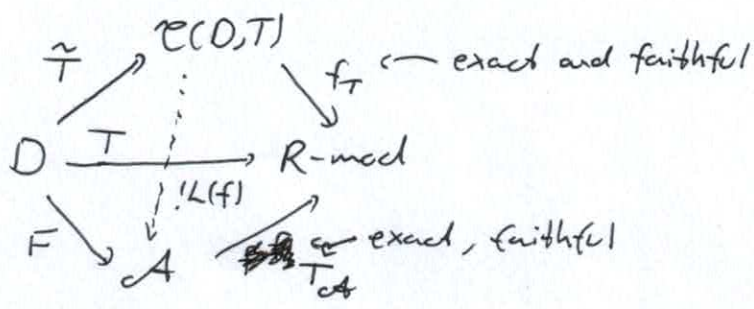 T̃
𝒞(D,T)
f_T ← exact and faithful
D
T
R-mod
!L(f)
F
𝒜
T_𝒜 ← exact, faithful